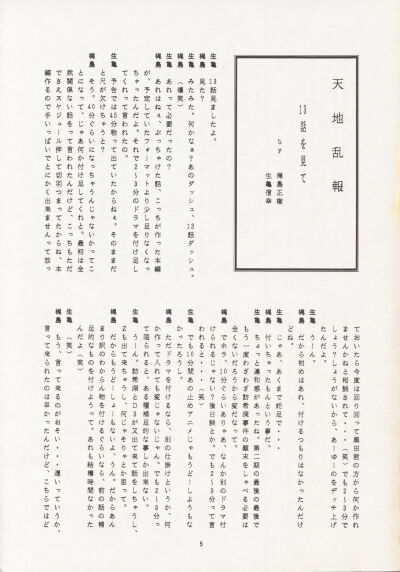 天地乱報
13話を見て
by 梶島正樹
生亀信幸
生亀 13話見ましたよ。
梶島 見た？
生亀 みたみた。何かなぁ？あのダッシュ、13話ダッシュ。
梶島 （爆笑）
生亀 あれって必要だったの？
梶島 あれはねぇ、ぶっちゃけた話、こっちが作った本編
が、予定していたフォーマットより少し足りなくなっ
ちゃったんだよ。それで2～3分のドラマを付け足し
てくれって言われたの。
生亀 予告では45分物って出ていたからねぇ。そのままだ
と尺が欠けちゃうと？
梶島 そう。40分ぐらいになっちゃうんじゃないかってこ
とになって、じゃあ何か付け足してくれと。最初は全
然関係ない話をって言われたんだけど、こっちもただ
でさえスケジュール押して切羽つまってたからね、本
編作るので手いっぱいでとにかく出来ませんって放っ
ておいたら今度は回り回って黒田君の方から何か作れ
ませんかねと相談されて・・・（笑）でも2～3分で
しょう？しょうがないから、あーゆーのをデッチ上げ
たんだよ。
生亀 うーん。
梶島 だから初めはあれ、付けるつもりはなかったんだけ
どね。
生亀 じゃあ、あくまで蛇足で・・・
梶島 付いちゃったもんという事だ。
生亀 ちょっと違和感があったね。第二期の最後の最後で
もう一度わざわざ訪希深事件の顛末をしゃべる必要は
全くないだろうから変だなって。
梶島 でホラ、10分ぐらいありゃあ、なんか別のドラマ付
けられるじゃない？後日談とか。でも2～3分って言
われると・・・（笑）
生亀 でも10分間あの止めアニメじゃもうどーしようもな
かったろうし。
梶島 ただドラマを付けるなら、別の仕掛けというか、何
か作って入れても変じゃないじゃん。でも2～3分っ
て限られると、ある種補足的な事しか出来ない。
生亀 うーん。訪希深とD3が又出て来て話をしちゃうし、
Zも出て来ちゃうし、何じゃそりゃとか思って。
梶島 だから、もーどうしようもないよ、うん。だからあん
まり訳のわからん物を付けるぐらいなら、前の話の補
足的なものを付けようって。あれも結構時間なかった
んだよ（笑）
生亀 （笑）
梶島 もう、言って来るのがおそい・・・遅いっていうか、
言って来られたのは早かったんだけど、こちらではど
5